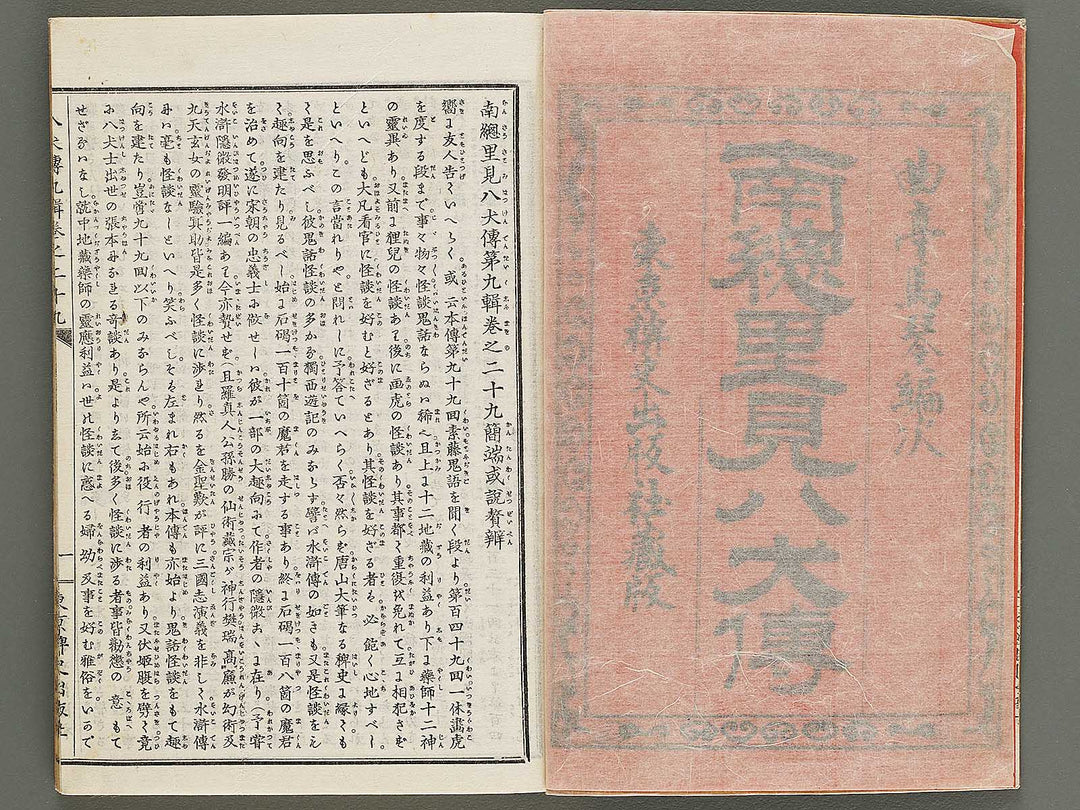 曲亭馬琴編次
南總里見八犬傳
東京稗史出版社藏版
南總里見八犬傳第九輯卷之二十九簡端或說贅辯
嚮に友人告ていへらく或云本傳第九十九回素藤鬼語を聞く段より第百四十九回一休畫虎
を度する段まで事々物々怪談鬼話ならぬハ稀也且上に十二地藏の利益あり下に藥師十二神
の靈異あり又前に狸兒の怪談あり後に画虎の怪談あり其事都て重複を免れて互に相犯さず
といへども大凡看官に怪談を好むと好ざるとあり其怪談を好ざる者ハ必飽く心地すべし
といへりこの言當れりやと問れしに予答ていへらく否々然らず唐山大筆なる稗史に緣ても
是を思ふべし彼鬼話怪談の多かるハ獨西遊記のみならず譬バ水滸傳の如きも又是怪談をもて
趣向を建たり見るべし始に石碣一百十箇の魔君を走する事あり終に石碣一百八箇の魔君
を治めて遂に宋朝の忠義士に做せしハ彼が一部の大趣向にて作者の隱微こゝに在り(予嘗
水滸隱微發明評一編あり今亦贅せず)且羅真人公孫勝の仙術戴宗が神行樊瑞高廉が幻術及
九天玄女の靈驗冥助皆是多く怪談に渉れり然るを金聖歎が評に三國志演義を非して水滸傳
にハ毫も怪談なしといへり笑ふべしそを左まれ右もあれ本傳も亦始より鬼話怪談をもて趣
向を建たり豈啻九十九回以下のみならんや所云始に役行者の利益あり又伏姬腹を劈て竟
に八犬士出世の張本になる奇談あり是より玄て後多く怪談に渉る者事皆勸懲の意もて
せざるハなし就中地藏藥師の靈應利益ハ世に怪談に惑へる婦幼又事を好む雅俗をいので
八犬傳九輯卷之二十九
一
東京稗史出版社